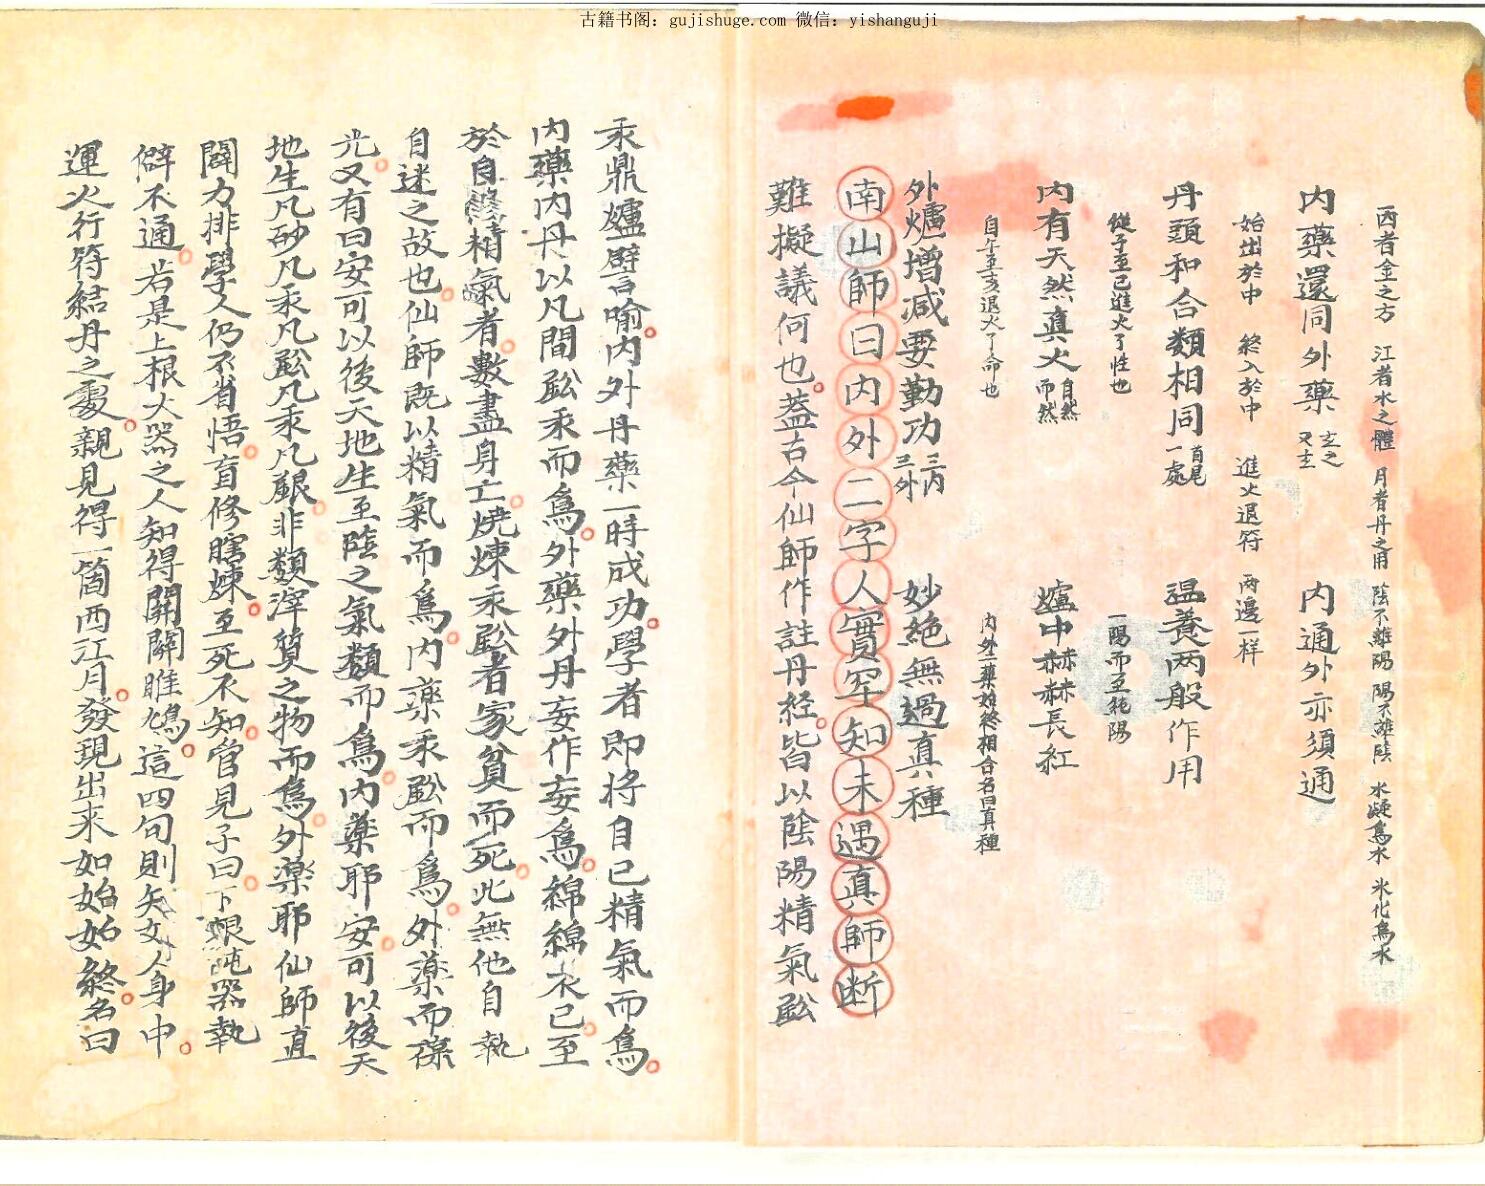 古籍书阁：gujishuge.com 微信：yishanguji
西者金之方 江者水之體 月者丹之用 陰不離陽 陽不離陰 水凝為氷 氷化為水
內藥還同外藥 玄之又玄 內通外亦須通
始出於中 終入於中 進火退符 兩邊一样
丹頭和合類相同 首尾一處 温養两般作用
從子至巳進火了性也 一陽而至純陽
內有天然真火 自然而然 爐中赫赫長紅
自午至亥退火了命也 內外二藥始終相合名曰真種
外爐增減要勤功 三內三外 妙絶無過真種
南山師曰內外二字人實罕知未遇真師断
難擬議何也蓋古今仙師作註丹經皆以陰陽精氣鈆
汞鼎爐譬喻內外丹藥一時成功學者即将自己精氣而爲
內藥內丹以凡間鈆汞而爲外藥外丹妄作妄爲綿綿不已至
於自修精氣者數盡身亡燒煉汞鈆者家貧而死此無他自執
自迷之故也仙師既以精氣而爲內藥汞鈆而爲外藥而葆
光又有曰安可以後天地生至陰之氣類而爲內藥耶安可以後天
地生凡砂凡汞凡鈆凡汞凡銀非類滓質之物而爲外藥耶仙師直
闢力排學人仍不省悟盲修瞎煉至死不知管見子曰下根鈍器執
僻不通若是上根大器之人知得關關雎鳩這四句則矢女人身中
運火行符結丹之處親見得一箇西江月發現出来如始始終名曰